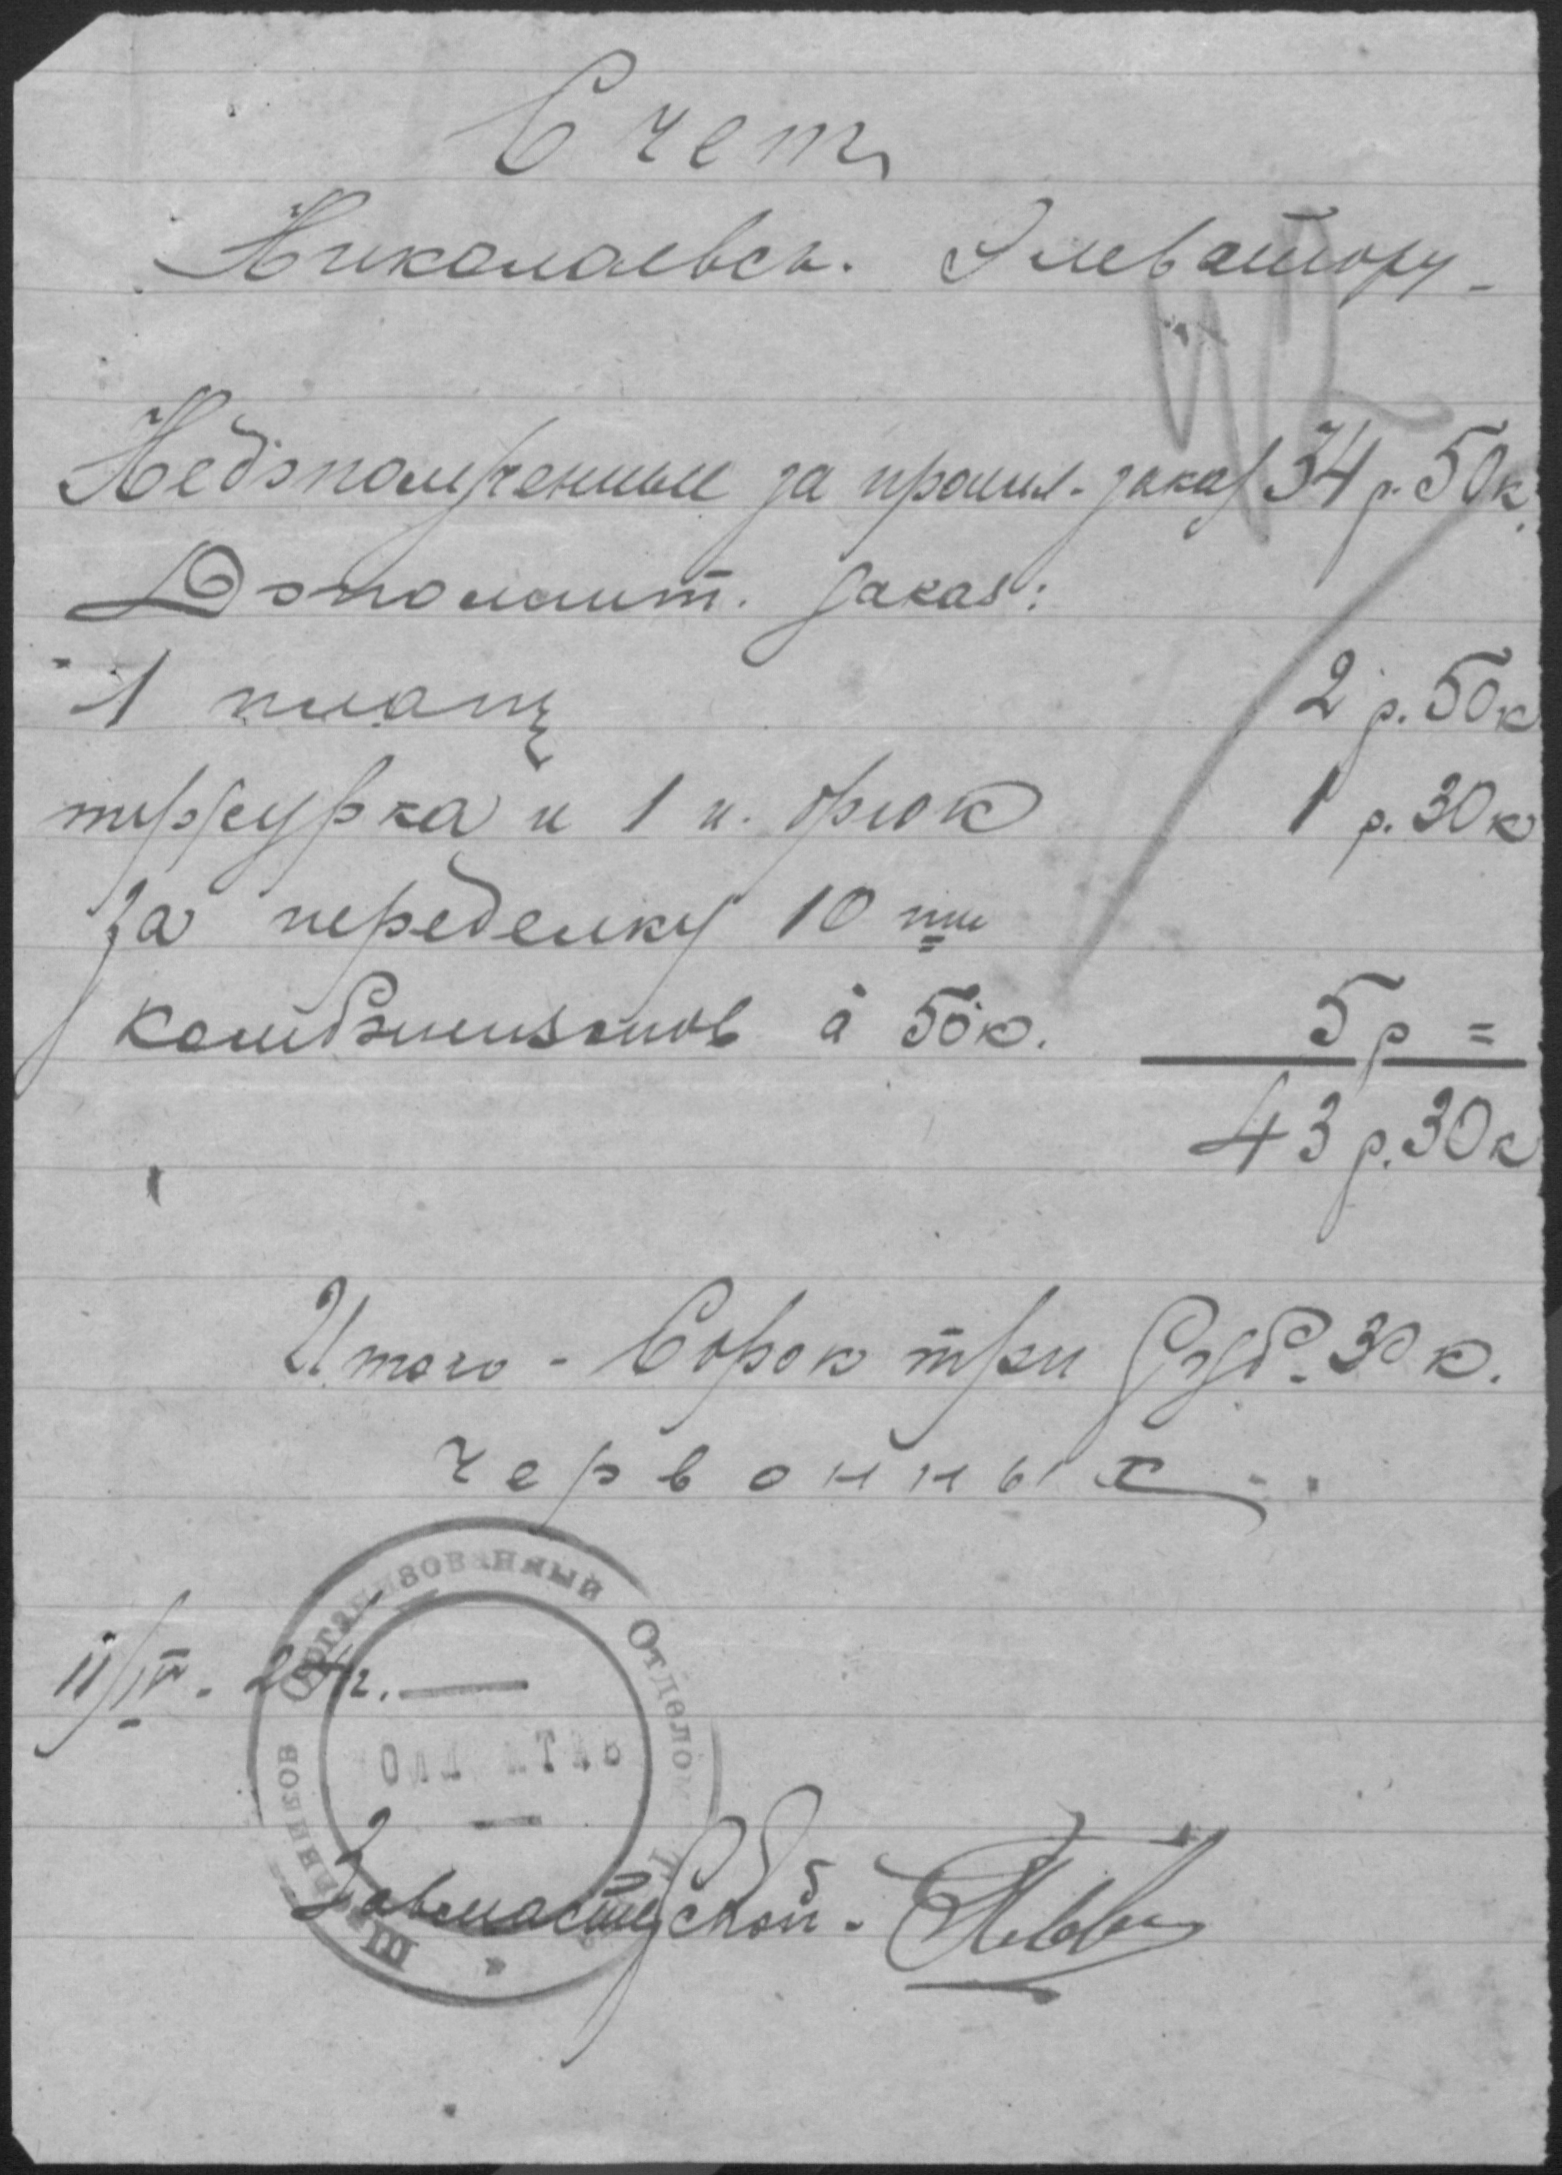 Счет
Николаевск. Элеватору
42
Недополученные за прошл. заказ 34 р. 50 к.
Дополнит. заказ:
1 плащ 2 р. 50 к
тужурка и 1 п. брюк 1 р. 30 к
За переделку 10 ти
комбинизонов à 50 к. 5 р =
43 р. 30 к
Итого - Сорок три руб. 30 к.
червонных
Организованный Отделом
11/IV. 24 г.
Завмастерской.